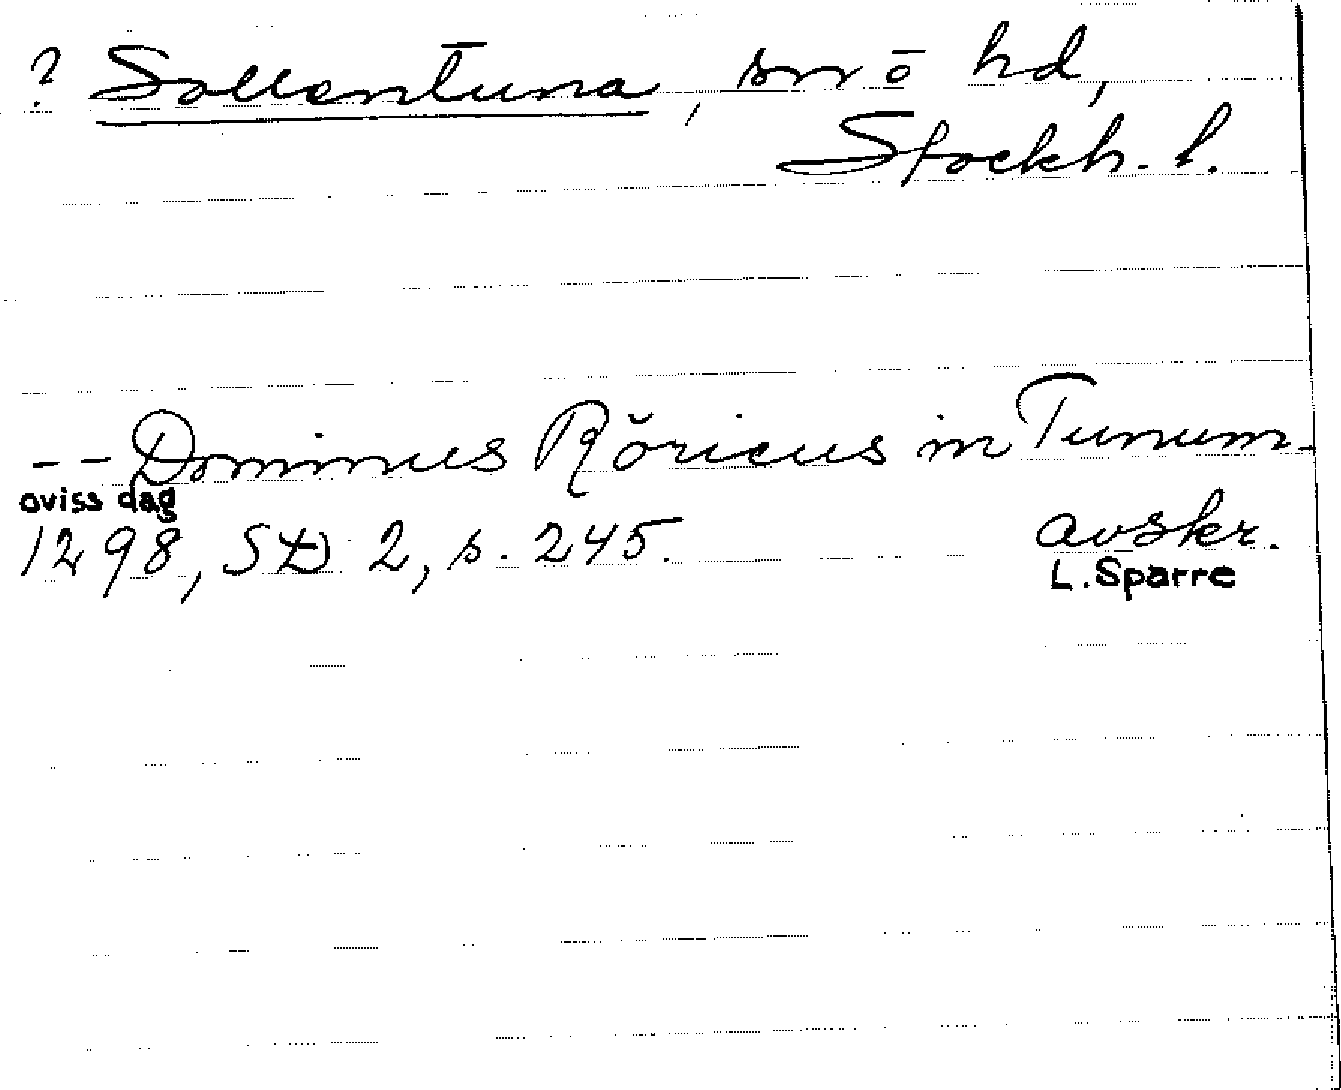 ? Sollentuna, sn o hd,
Stockh. l.
-- Dominus Röricus in Tunum-
oviss dag
1298, SD 2, s. 245. avskr.
L. Sparre